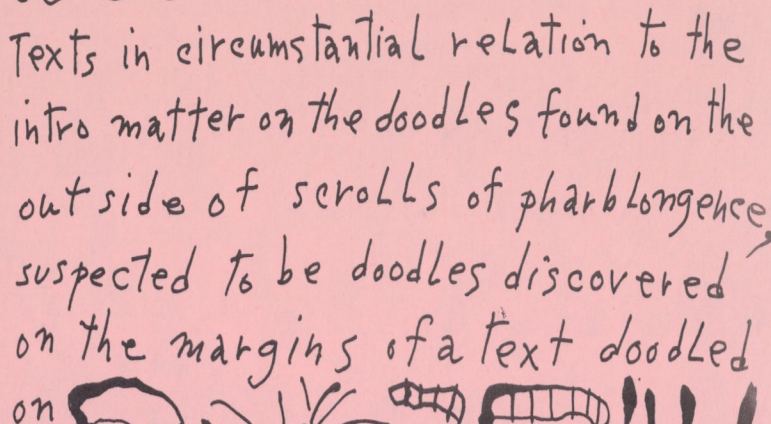 Texts in circumstantial relation to the
intro matter on the doodles found on the
outside of scrolls of pharblongence,
suspected to be doodles discovered
on the margins of a text doodled
on